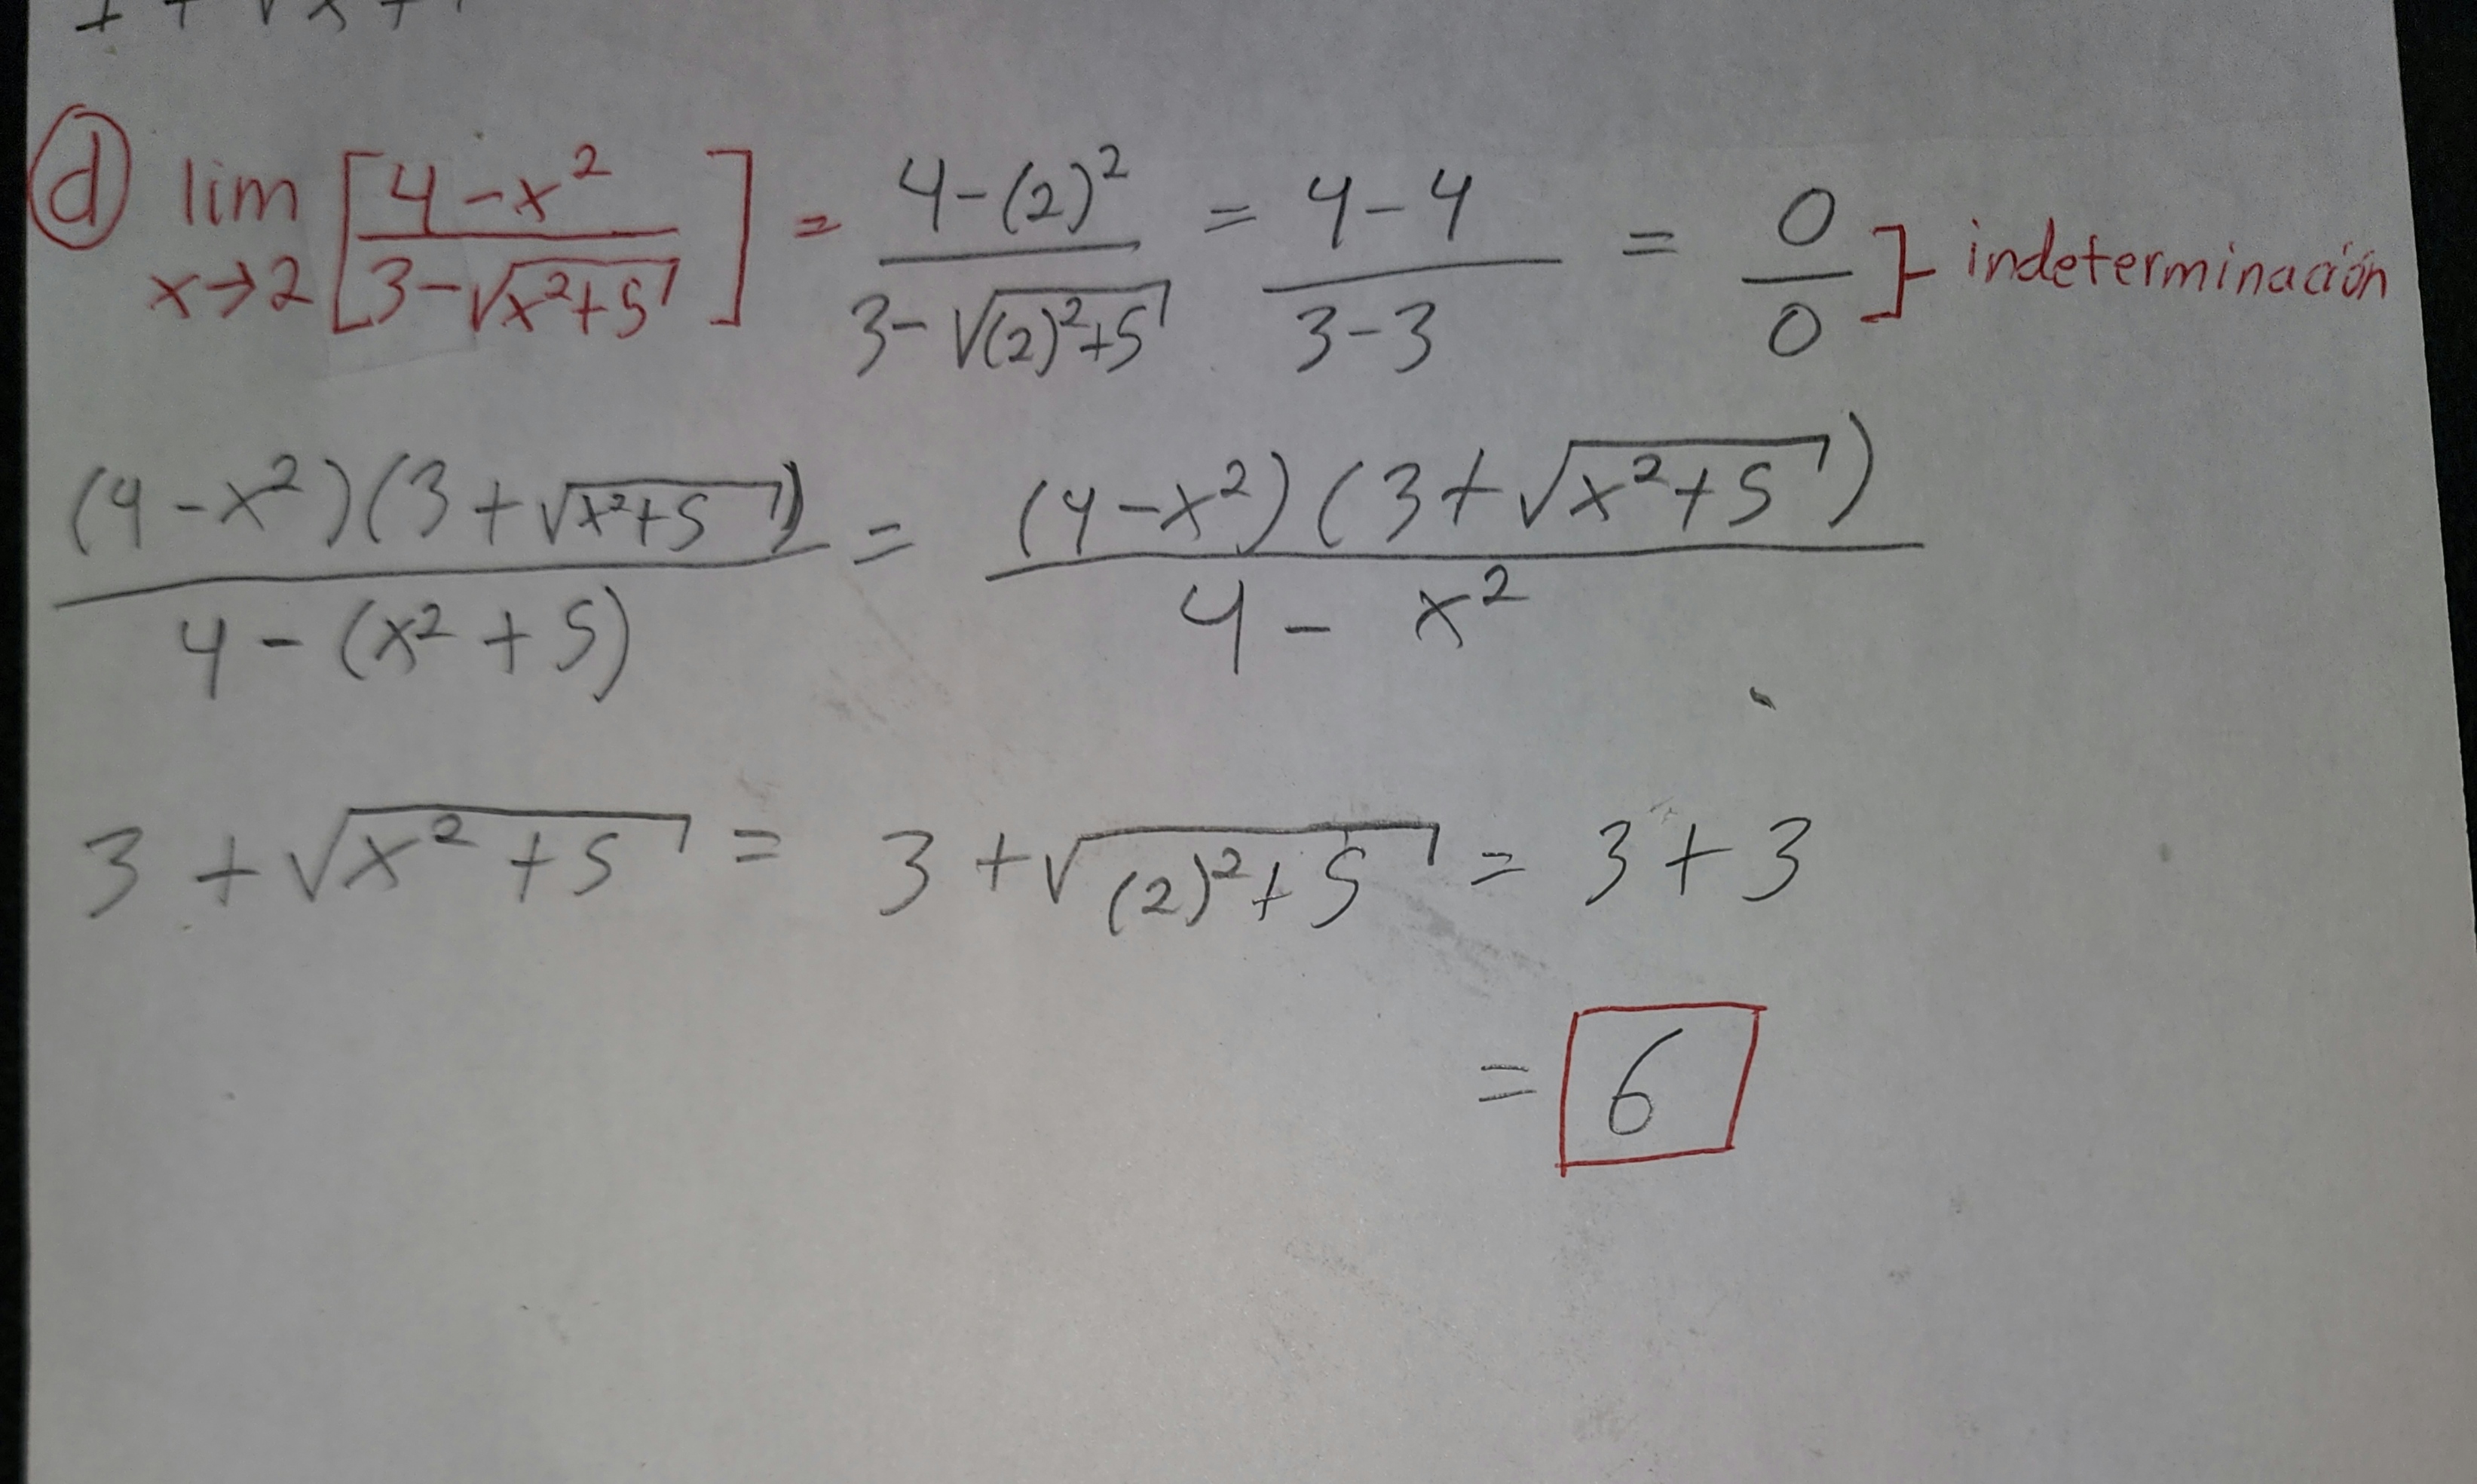 d lim x→2 [4-x²/3-√x²+5] = 4-(2)²/3-√(2)²+5 = 4-4/3-3 = 0/0 }- indeterminación
(4-x²)(3+√x²+5)/4-(x²+5) = (4-x²)(3+√x²+5)/4-x²
3+√x²+5 = 3+√(2)²+5 = 3+3
= 6